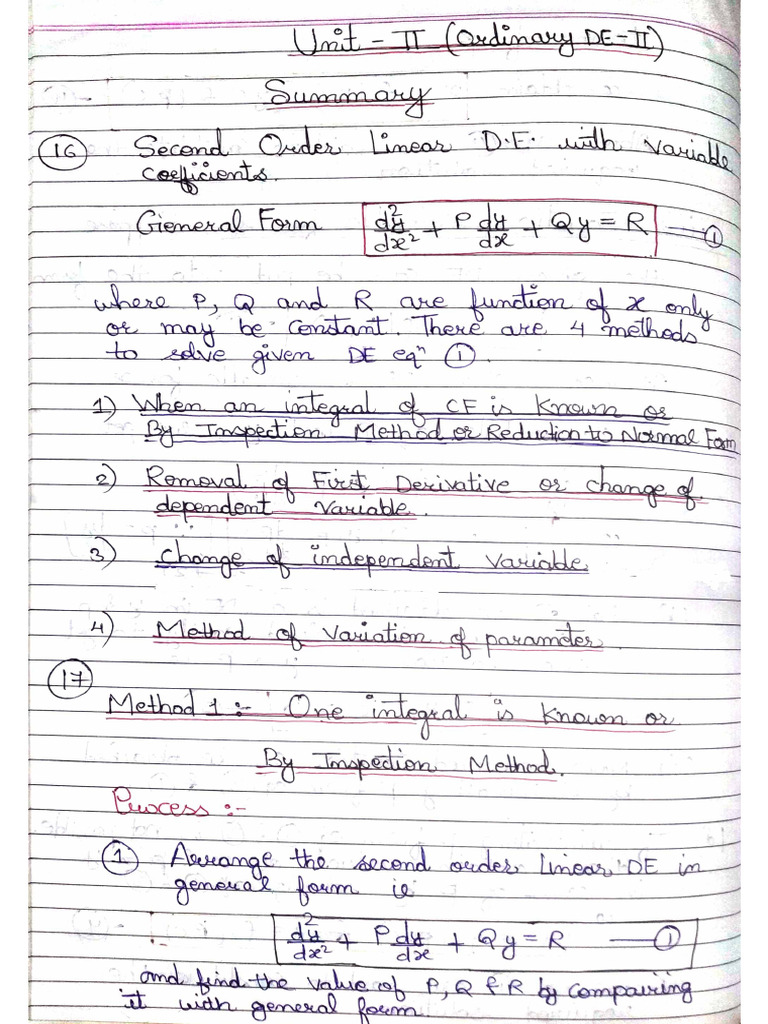 Unit - II (Ordinary DE-II)
Summary
16 Second Order Linear D.E. with variable
coefficients.
General Form d²y/dx² + P dy/dx + Qy = R — 1
where P, Q and R are function of x only
or may be constant. There are 4 methods
to solve given DE eqⁿ 1.
1) When an integral of CF is Known or
By Inspection Method or Reduction to Normal Form
2) Removal of First Derivative or change of
dependent variable.
3) change of independent variable
4) Method of variation of parameter.
17
Method 1 :- One integral is known or
By Inspection Method.
Process :-
1 Arrange the second order linear DE in
general form ie
d²y/dx² + P dy/dx + Qy = R — 1
and find the value of P, Q & R by compairing
it with general form